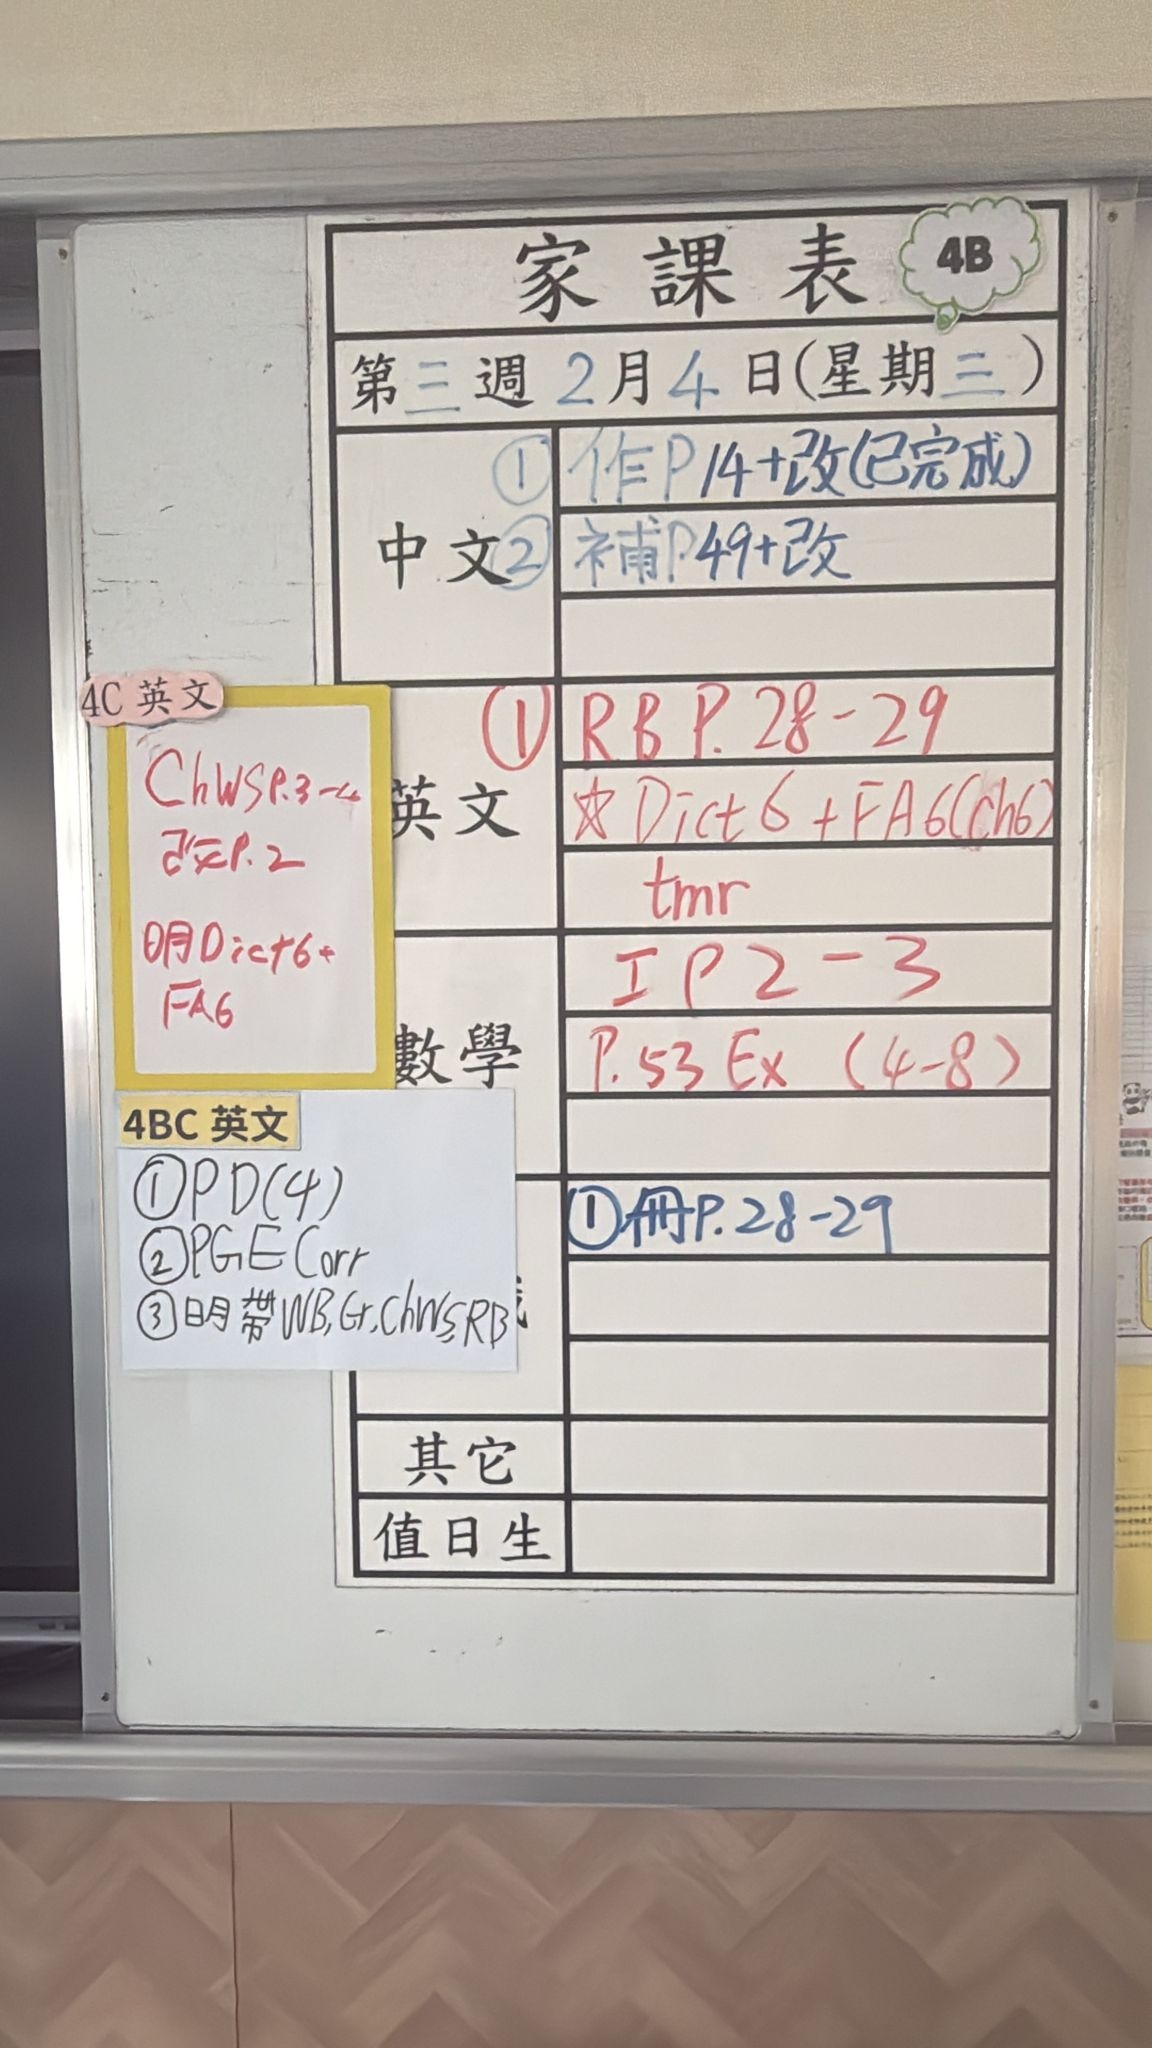 家課表 4B
第三週 2月4日(星期三)
中文
① 作P14+改(已完成)
② 補P.49+改
英文
① RB P.28-29
☆ Dict 6 + FA6(ch6)
tmr
數學
I P2-3
P.53 Ex (4-8)
① 冊P.28-29
其它
值日生
4C 英文
ChWS P.3-4
改P.2
明Dict6+
FA6
4BC 英文
①PD(4)
②PGE Corr
③明帶WB, Gr, ChWS, RB